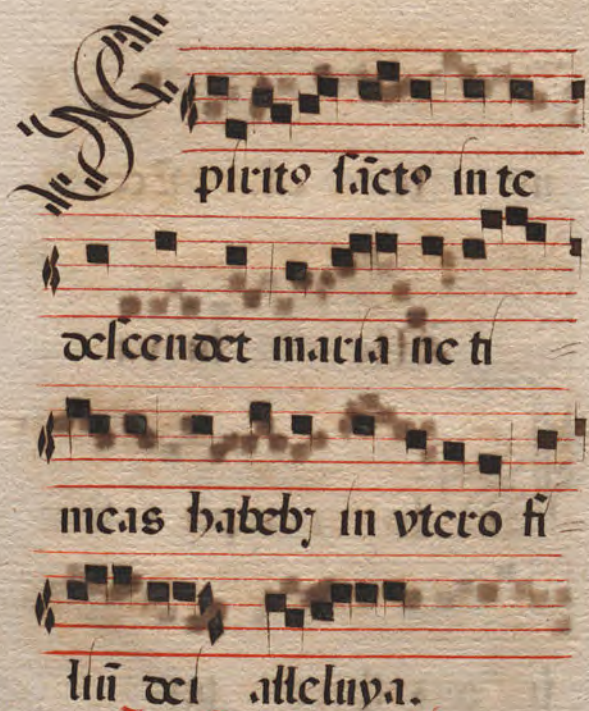 Spirit⁹ sāct⁹ in te
descendet maria ne ti
meas habebꝫ in vtero fi
liū dei alleluya.